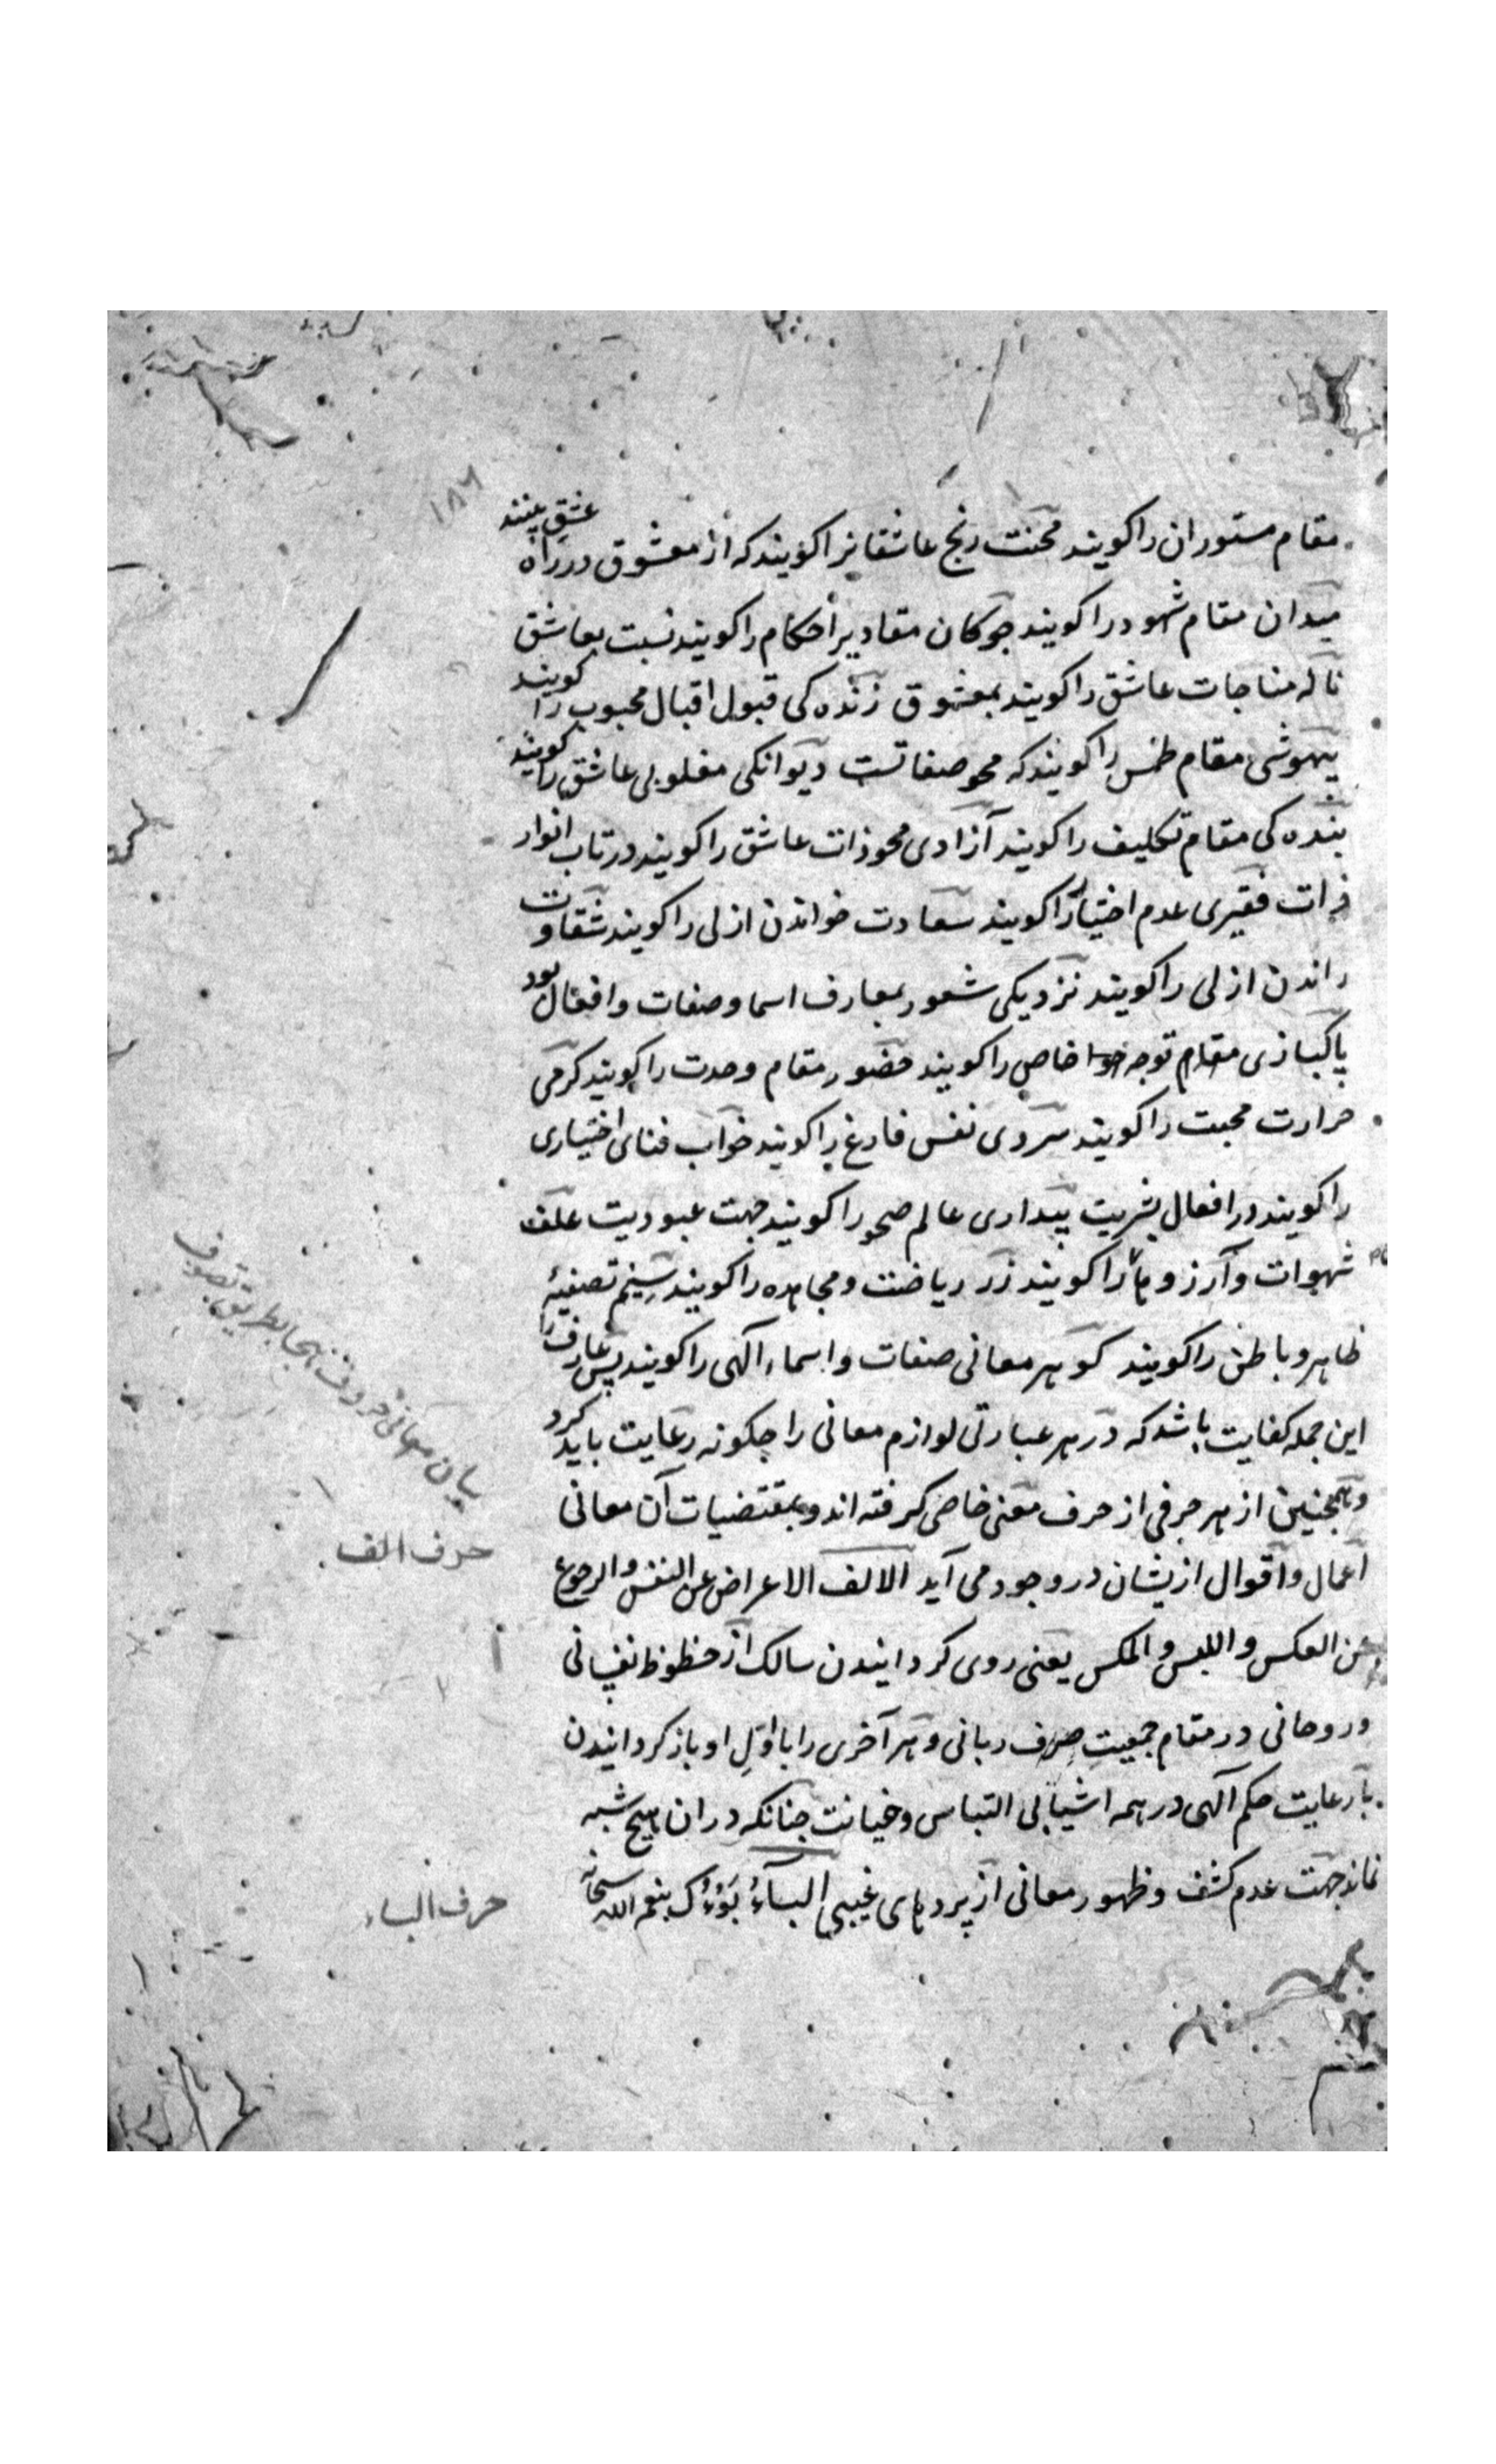 ۱۸۶
مقام مستوران را کویند محنت رنج عاشقانرا کویند که از معشوق در راه عشق بینند
میدان مقام شهود را کویند جوکان مقادیر احکام را کویند نسبت بعاشق
ناله مناجات عاشق را کویند بمعشوق زنده کی قبول اقبال محبوب را کویند
بیهوشی مقام طمس را کویند که محو صفاتست دیوانکی مغلوبی عاشق را کویند
بنده کی مقام تکلیف را کویند آزادی محو ذات عاشق را کویند در تاب انوار
ذات فقیری عدم اختیار را کویند سعادت خواندن ازلی را کویند شقاوت
راندن ازلی را کویند نزدیکی شعور بمعارف اسما و صفات و افعال بود
پاکبازی مقام توجه خاص را کویند حضور مقام وحدت را کویند کرمی
حرارت محبت را کویند سردی نفس فارغ را کویند خواب فنای اختیاری
را کویند در افعال بشریت بیداری عالم صحو را کویند جهت عبودیت علف
شهوات و آرزوها را کویند زر ریاضت و مجاهده را کویند سیم تصفیهٔ
ظاهر و باطن را کویند کوهر معانی صفات و اسماء الهی را کویند پس عارف را
این جمله کفایت باشد که در هر عبارتی لوازم معانی را جکونه رعایت باید کرد
و همجنین از هر حرفی از حرف معنی خاص کرفته اند و بمقتضیات آن معانی
اعمال و اقوال ازیشان در وجود می آید الالف الاعراض عن النفس و الرجوع
عن العکس و اللبس و المکس یعنی روی کردانیدن سالک از حظوظ نفسانی
و روحانی در مقام جمعیتِ صرف ربانی و هر آخری را با اوّلِ او باز کردانیدن
با رعایت حکم الهی در همه اشیا بی التباس و خیانت جنانکه دران هیچ شبه
نماند جهت عدم کشف و ظهور معانی از پردهای غیبی البآءُ بَوْءُکَ بنعم الله سبحانه
بیان معانی حروف تهجا بطریق تصوف
حرف الف
حرف الباء